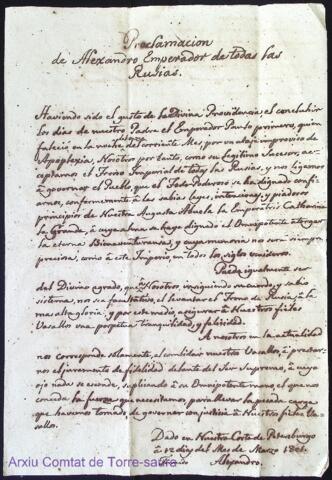 Proclamacion
de Alexandro Emperador de todas las
Rusias.
Haviendo sido el gusto de la Divina Providencia, el concluhir
los dias de nuestro Padre el Emperador Paulo primero, quien
falleció en la noche del corriente Mes, por un ataq improviso de
Apoplexia, Nosotros por tanto, como su legitimo Sucesor, ac
ceptamos el Trono Imperial de todas las Rusias, y nos ligamos
à governar el Pueblo, que el Todo Poderoso se ha dignado confi
arnos, conformemente à las sabias leyes, intenciones, y piadosos
principios de Nuestra Augusta Abuela la Emperatris Catharina
la Grande, à cuya alma se haya dignado el Omnipotente otorgar
la eterna Bienaventuransa, y cuya memoria no será siempre
preciosa, como à este Imperio, en todos los siglos venideros.
Pueda igualmente ser
del Divino agrado, que Nosotros, insiguiendo su cuerdo, y sabio
sistema, nos sea facultativo, el levantar el Trono de Rusia à la
mas alta gloria, y por este medio, asegurar à Nuestros fieles
Vasallos una perpetua tranquilidad, y felicidad.
A nosotros en la actualidad
nos corresponde solamente, el combidar nuestros Vasallos, à prestar
nos el juramento de fidelidad delante del Ser Supremo, à cuyo
ojo nada se esconde, suplicando à su Omnipotente mano, el que nos
conceda la fuerza que necesitamos, para llevar la pesada carga
que havemos tomado, de governar con justicia à Nuestros fieles Va
sallos.
Dado en Nuestra Corte de Petersburgo
à 12 dias del Mes de Marzo 1801.
Alexandro.
Arxiu Comtat de Torre-saura